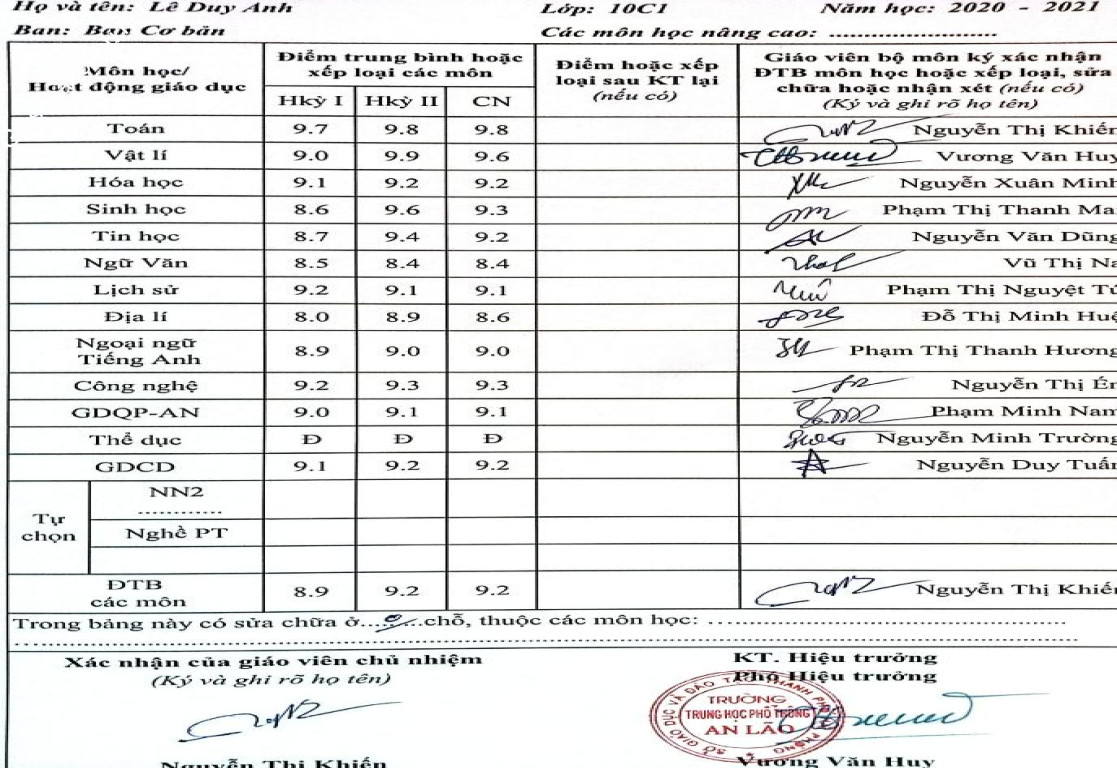 Họ và tên: Lê Duy Anh Lớp: 10C1 Năm học: 2020 - 2021
Ban: Ban Cơ bản Các môn học nâng cao: ........................
Môn học/ Hoạt động giáo dục Điểm trung bình hoặc xếp loại các môn Điểm hoặc xếp loại sau KT lại (nếu có) Giáo viên bộ môn ký xác nhận ĐTB môn học hoặc xếp loại, sửa chữa hoặc nhận xét (nếu có) (Ký và ghi rõ họ tên)
Hkỳ I Hkỳ II CN
Toán 9.7 9.8 9.8 Nguyễn Thị Khiến
Vật lí 9.0 9.9 9.6 Vương Văn Huy
Hóa học 9.1 9.2 9.2 Nguyễn Xuân Minh
Sinh học 8.6 9.6 9.3 Phạm Thị Thanh Ma
Tin học 8.7 9.4 9.2 Nguyễn Văn Dũng
Ngữ Văn 8.5 8.4 8.4 Vũ Thị Na
Lịch sử 9.2 9.1 9.1 Phạm Thị Nguyệt Tú
Địa lí 8.0 8.9 8.6 Đỗ Thị Minh Huệ
Ngoại ngữ Tiếng Anh 8.9 9.0 9.0 Phạm Thị Thanh Hương
Công nghệ 9.2 9.3 9.3 Nguyễn Thị Én
GDQP-AN 9.0 9.1 9.1 Phạm Minh Nam
Thể dục Đ Đ Đ Nguyễn Minh Trường
GDCD 9.1 9.2 9.2 Nguyễn Duy Tuấn
Tự chọn NN2 ............
Nghề PT
ĐTB các môn 8.9 9.2 9.2 Nguyễn Thị Khiến
Trong bảng này có sửa chữa ở....0....chỗ, thuộc các môn học: ........................
Xác nhận của giáo viên chủ nhiệm KT. Hiệu trưởng
(Ký và ghi rõ họ tên) Phó Hiệu trưởng
TRƯỜNG
TRUNG HỌC PHỔ THÔNG
AN LÃO
Nguyễn Thị Khiến Vương Văn Huy